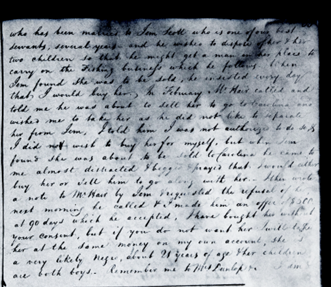 who has been married to Tom Scott who is one of our best
servants, several years and he wishes to dispose of her & her
two children so that he might get a man in her place to
carry on the fishing business which he follows. When
Tom found she was to be sold, he insisted every day
that I would buy her, In February Mr Hair called and
told me he was about to sell her to go to Carolina and
wished me to take her as he did not like to separate
her from Tom, I told him I was not authorized to do so &
I did not wish to buy her for myself, but when
found she was about to be sold to Carolina he came to
me almost distracted & begged & prayed that I would either
buy her or sell him to go along with her. I then wrote
a note to Mr Hair by and the refusal of her
next morning he called & I made him an offer $500
at 90 days which he accepted, I have bought her without
your consent, but if you do not want her I will take
her at the same money on my own account, she is
a very likely Negro, about 21 years of age & her children
are both boys. Remember me to Mrs Dunlop